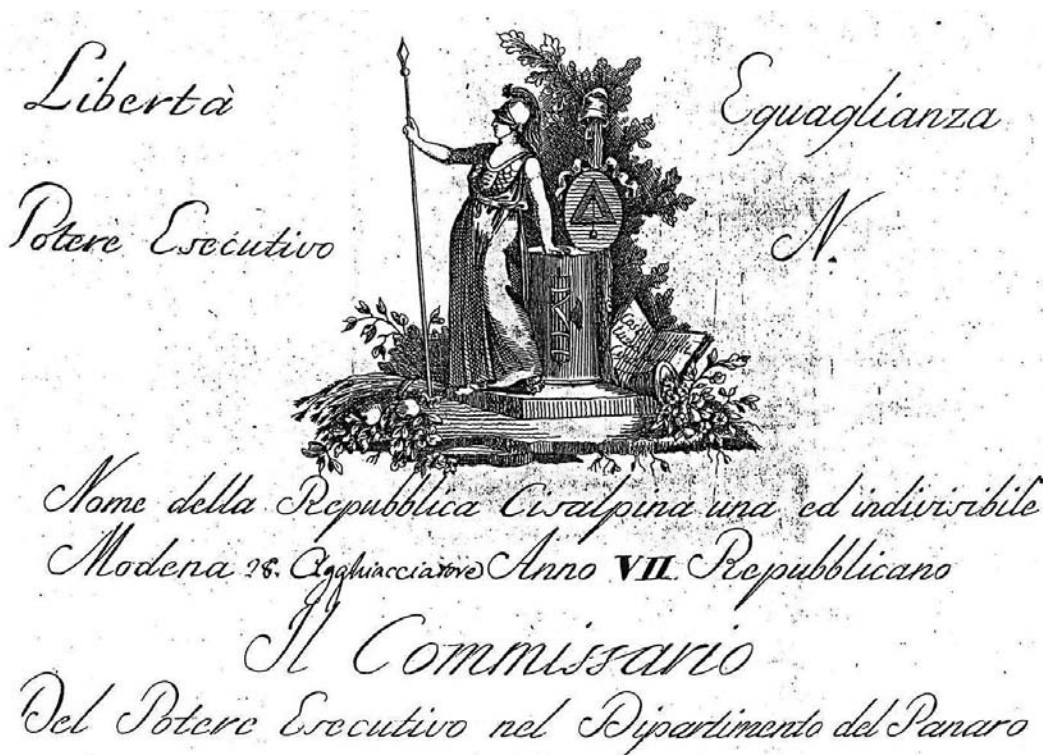 Libertà
Eguaglianza
Potere Esecutivo
N.
Nome della Repubblica Cisalpina una ed indivisibile
Modena 28. Agghiacciatore Anno VII Repubblicano
Il Commissario
Del Potere Esecutivo nel Dipartimento del Panaro